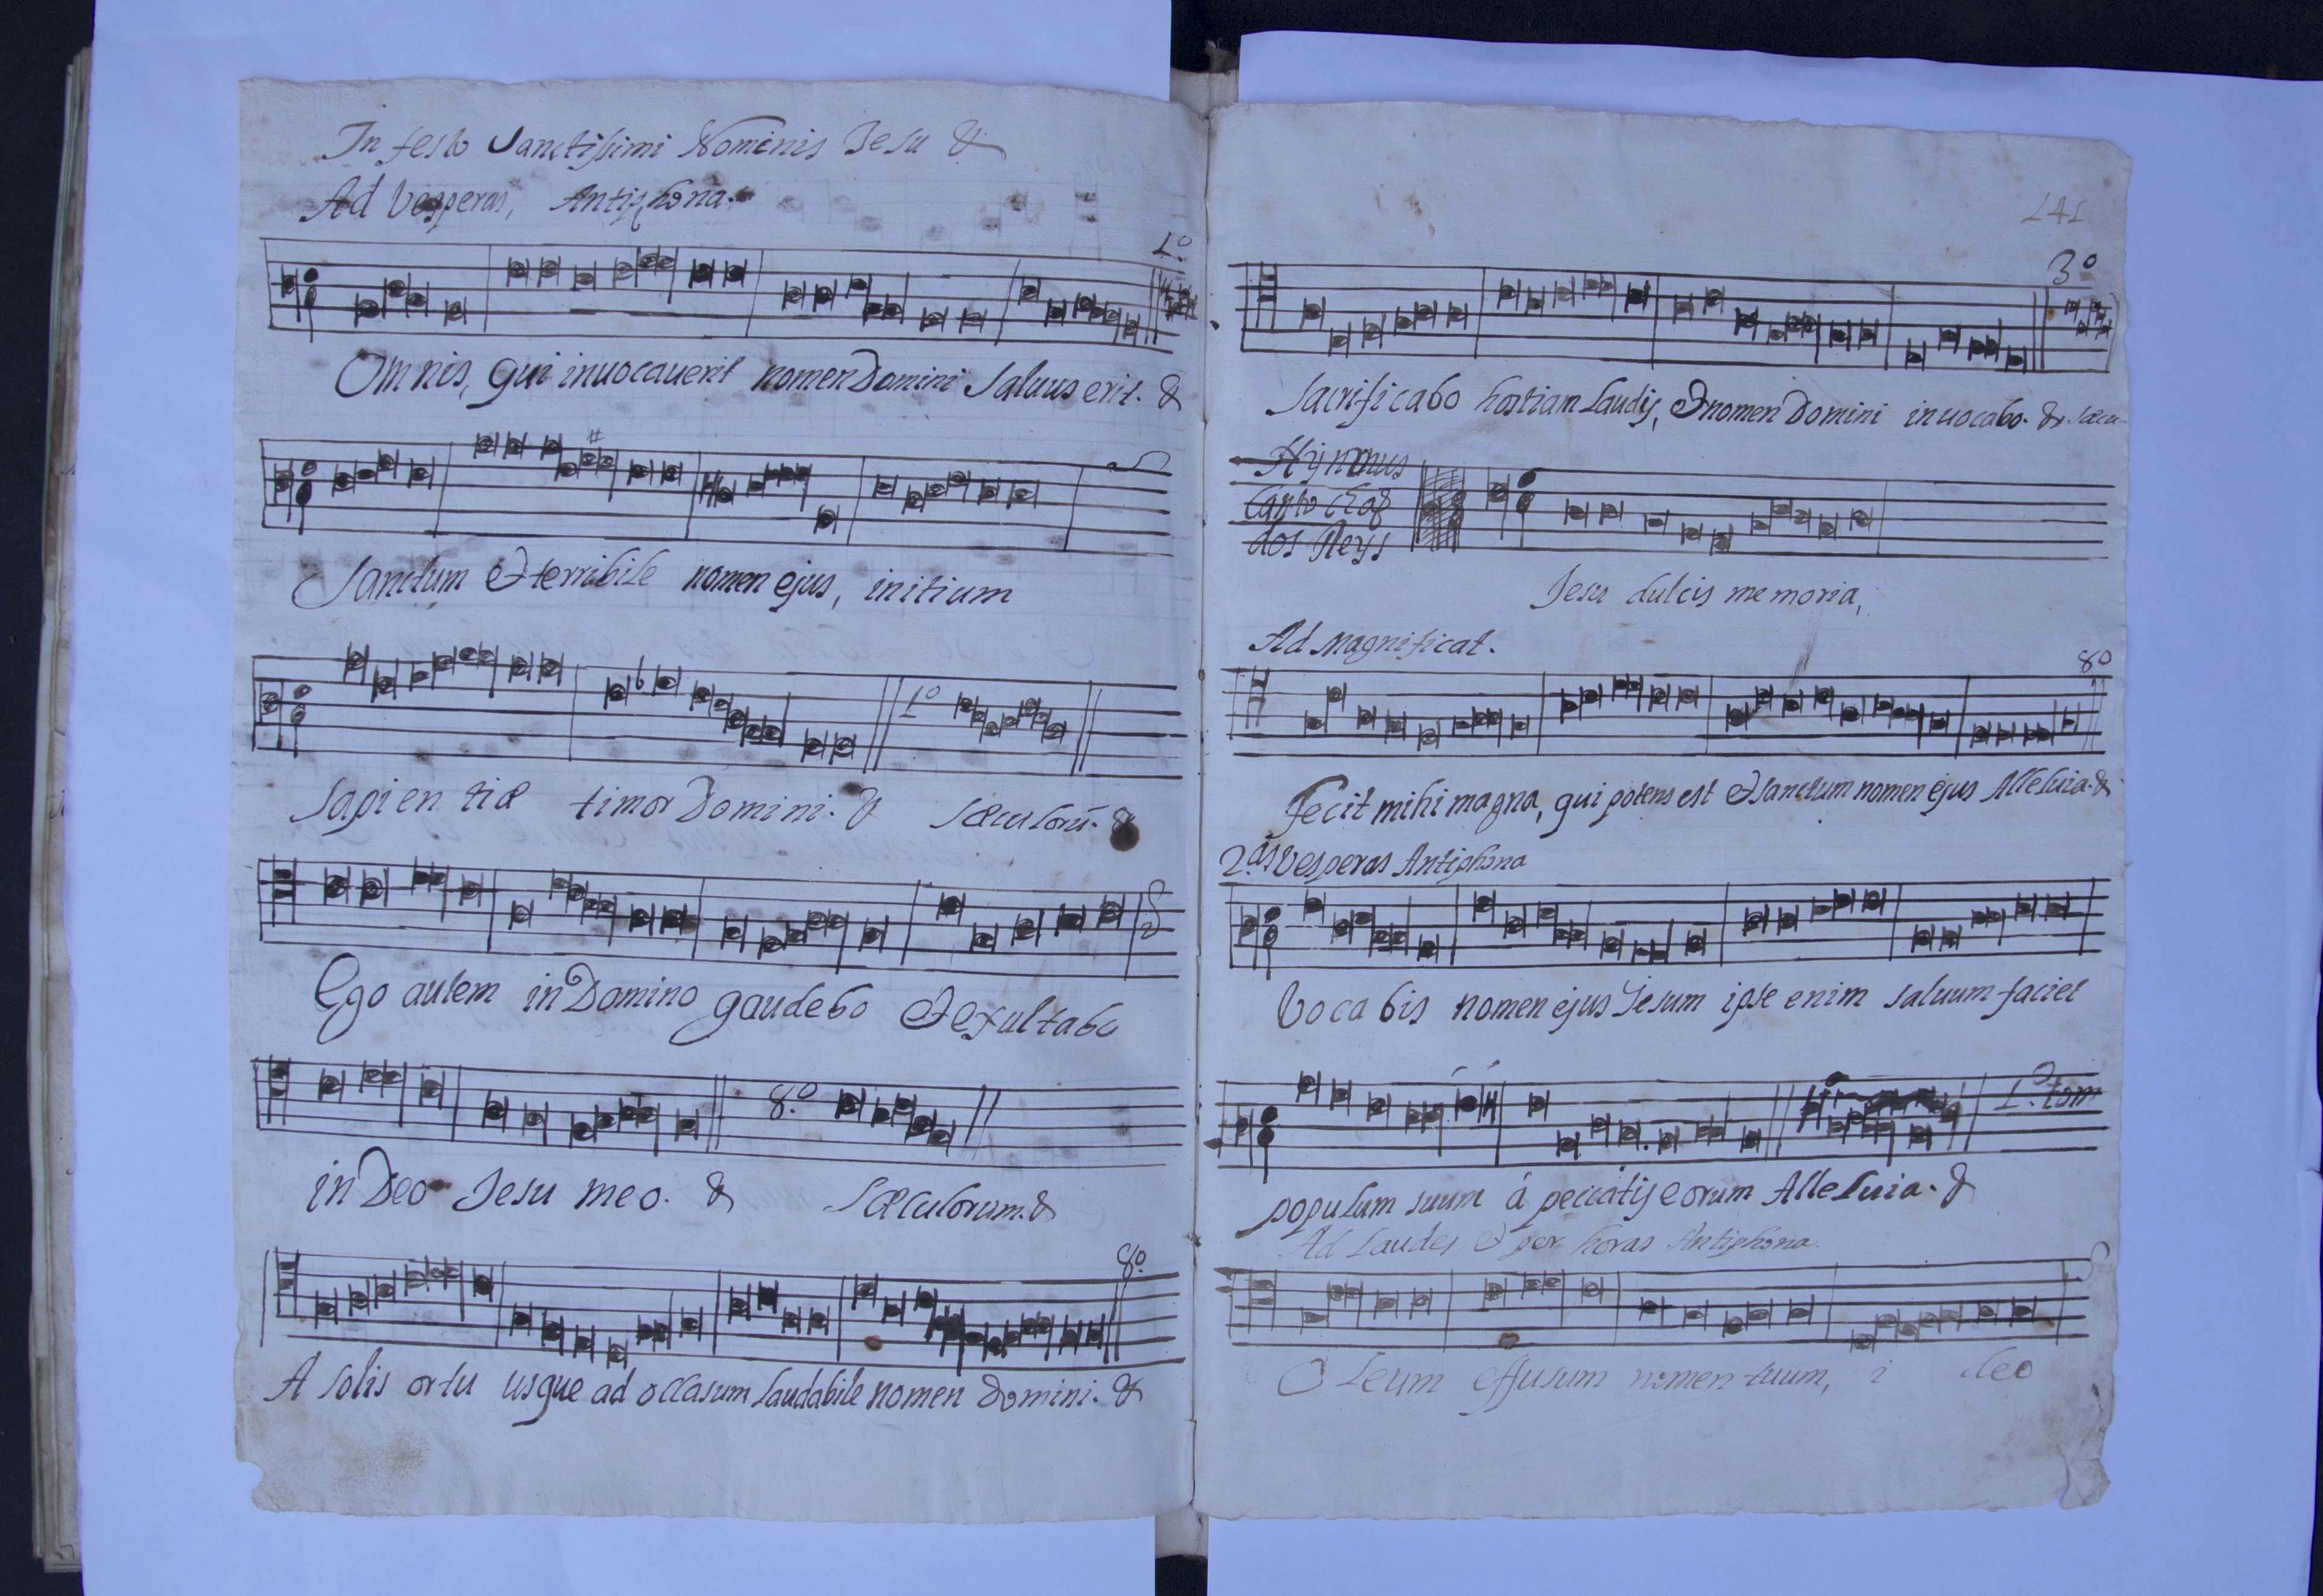 In festo Sanctissimi Nominis Jesu &
Ad Vesperas, Antiphona.
1º
Omnis, qui invocaverit nomen Domini Salvus erit. &
Sanctum & terribile nomen ejus, initium
1º
Sapientiæ timor Domini. & Sæculorũ. &
Ego autem in Domino gaudebo & exultabo
8.º
in Deo Jesu meo. & Sæculorum. &
8º.
A Solis ortu usque ad occasum Laudabile nomen Domini. &
141
3º
Sacrificabo hostiam Laudis, & nomen Domini invocabo. & Sæcu-
Hÿnmus
Canto
dos Reys
Jesu dulcis memoria,
Ad Magnificat.
8º
Fecit mihi magna, qui potens est & Sanctum nomen ejus Alleluia. &
2.as Vesperas Antiphona
Vocabis nomen ejus Jesum ipse enim salvum faciet
1.º tom
populum suum á peccatis eorum Alleluia. &
Ad Laudes & per horas Antiphona.
Oleum effusum nomen tuum, i deo